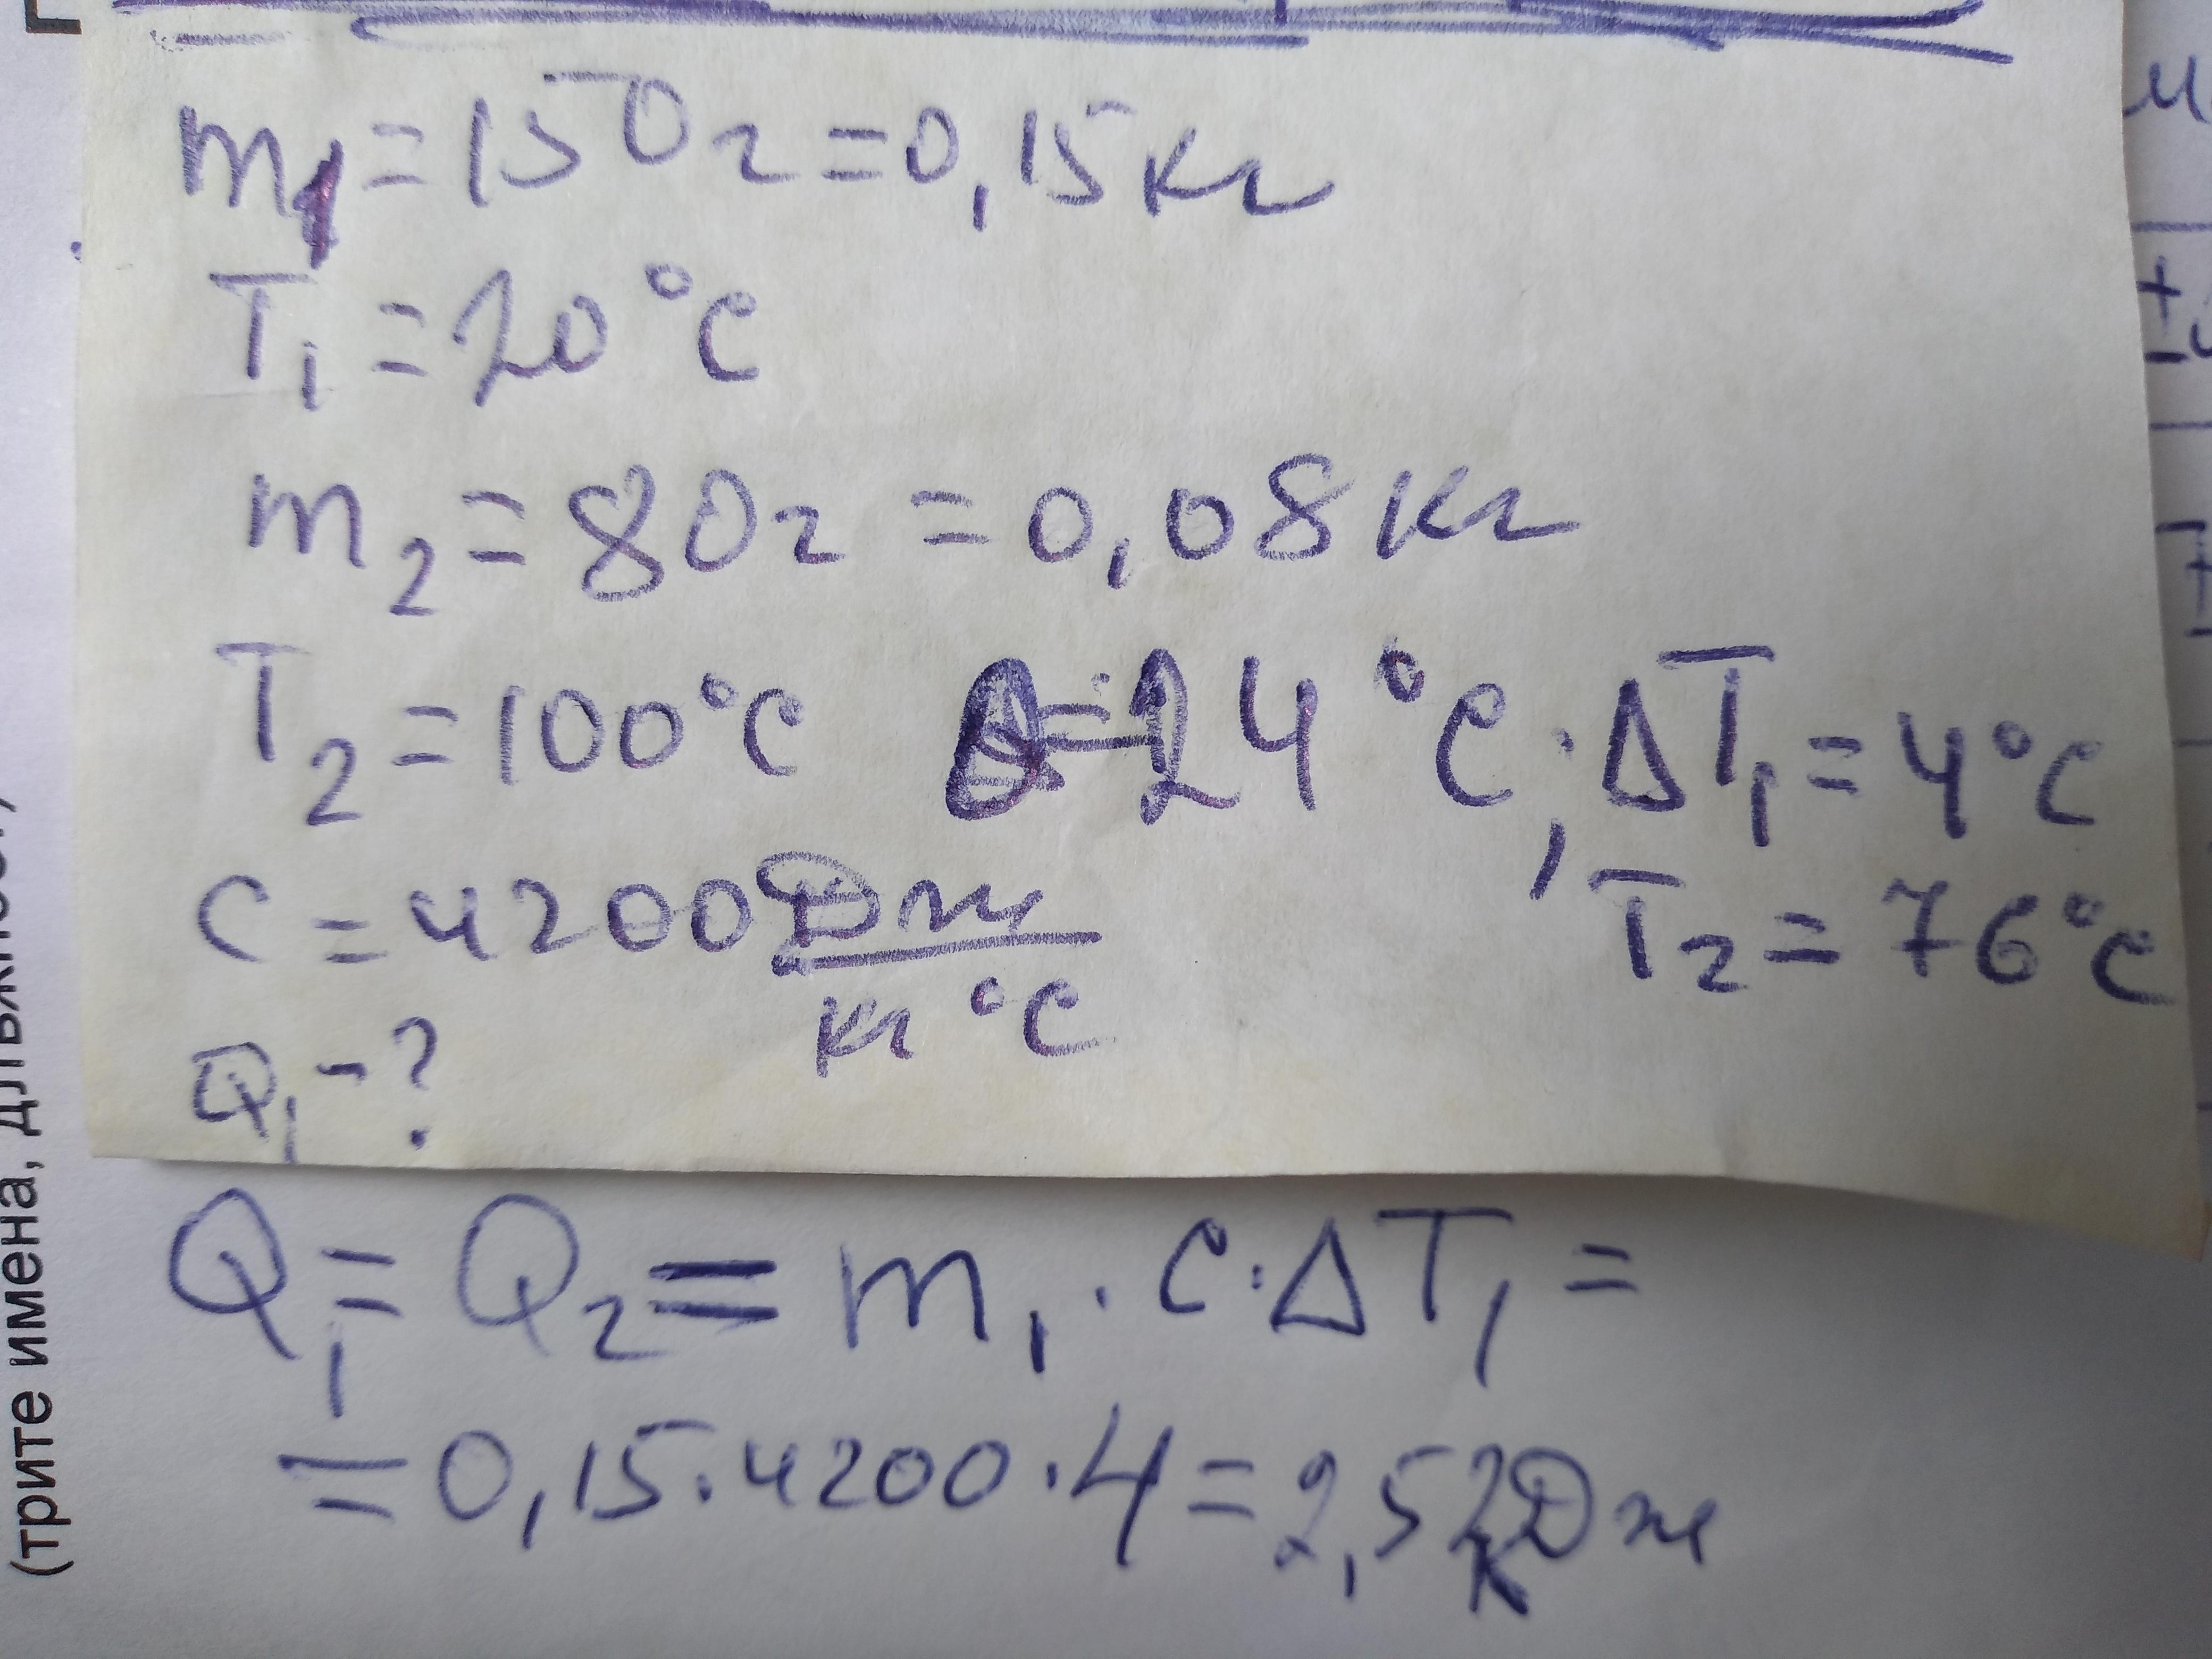 m₁ = 150г = 0,15кг
T₁ = 20°C
m₂ = 80г = 0,08кг
T₂ = 100°C θ = 24°C; ΔT₁ = 4°C
T₂ = 76°C
c = 4200 Dж/кг°C
Q₁ - ?
Q₁ = Q₂ = m₁ · c · ΔT₁ =
= 0,15 · 4200 · 4 = 2,52кDж
(трите имена, длъжност)